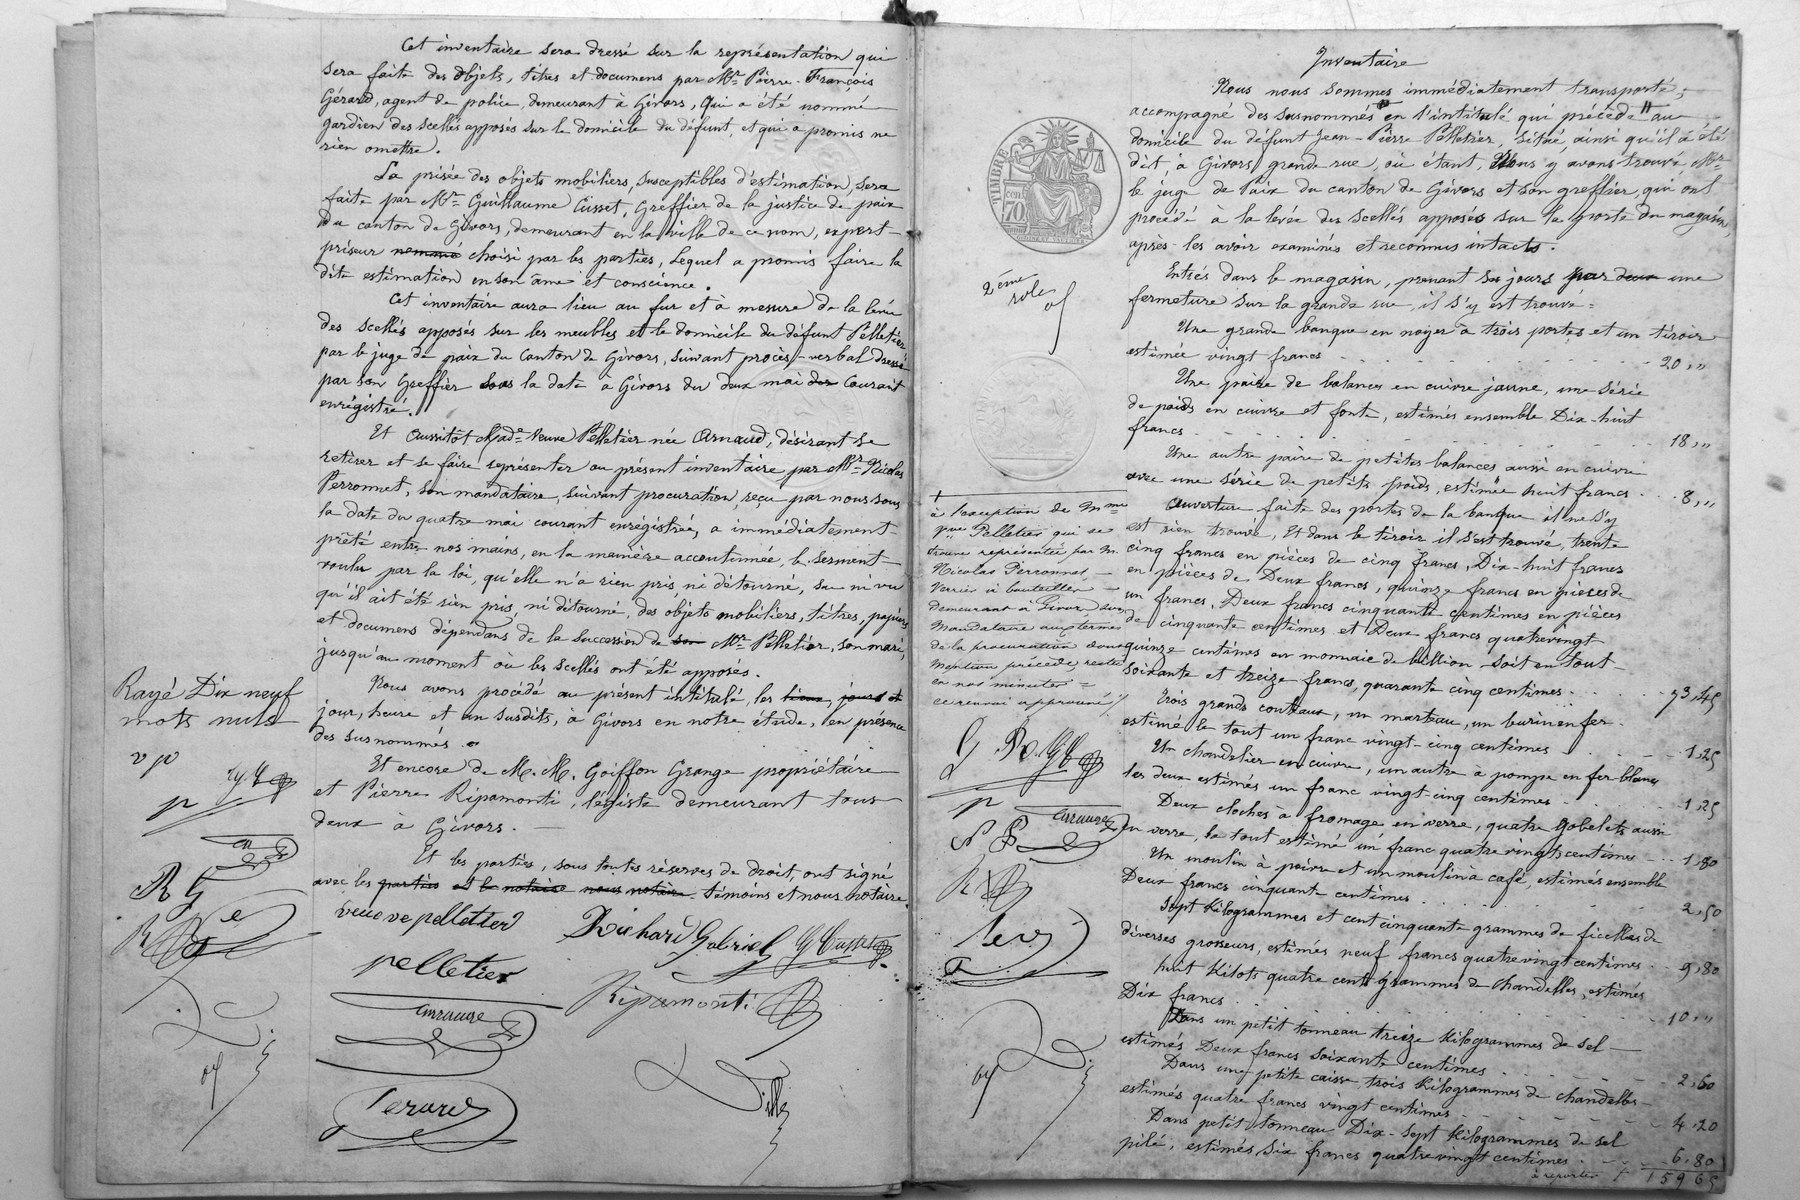 Cet inventaire sera dressé sur la représentation qui
sera faite des objets, titres et documens par Mr. Pierre-François
Gérard, agent de police, demeurant à Givors, qui a été nommé
gardien des scellés apposés sur le domicile du défunt, et qui a promis ne
rien omettre.
La prisée des objets mobiliers, susceptibles d'estimation, sera
faite par Mr. Guillaume Cusset, Greffier de la justice de paix
du canton de Givors, demeurant en la ville de ce nom, expert-
priseur nommé choisi par les parties, Lequel a promis faire la
dite estimation en son âme et conscience.
Cet inventaire aura lieu au fur et à mesure de la levée
des scellés apposés sur les meubles et le domicile du défunt Pelletier
par le juge de paix du Canton de Givors, suivant procès-verbal dressé
par son Greffier sous la date à Givors du deux mai dus courant
enrégistré.
Et aussitôt Made. Veuve Pelletier née Arnaud, désirant se
retirer et se faire représenter au présent inventaire par Mr. Nicolas
Perronnet, son mandataire, suivant procuration, reçu par nous sous
la date du quatre mai courant enrégistrée, a immédiatement
prêté entre nos mains, en la manière accoutumée, le serment
voulu par la loi, qu'elle n'a rien pris, ni détourné, su ni vu
qu'il ait été rien pris, ni détourné, des objets mobiliers, titres, papiers
et documens dépendans de la succession de son Mr. Pelletier, son mari,
jusqu'au moment où les scellés ont été apposés.
Nous avons procédé au présent intitulé, les lieux, jours et
jour, heure et an susdits, à Givors en notre étude, en présence
des susnommés.
Et encore de M. M. Goiffon Grange propriétaire
et Pierre Ripamonti, légiste demeurant tous
deux à Givors.
Et les parties, sous toutes réserves de droit, ont signé
avec les parties et le notaire nous notaire témoins et nous notaire.
Rayé Dix neuf
mots nuls
veuve pelletier
Richard Gabriel
G Cusset
pelletier
Ripamonti
Gerard
RG
Inventaire
Nous nous sommes immédiatement transporté,
accompagné des susnommés en l'intitulé qui précède au
domicile du défunt Jean-Pierre Pelletier, situé, ainsi qu'il a été
dit, à Givors, grande rue, où étant, Nous y avons trouvé, Mr.
le juge de Paix du canton de Givors et son greffier, qui ont
procédé à la levée des scellés apposés sur la porte du magasin,
après les avoir examinés et reconnus intacts.
TIMBRE
70
2ème
role
Entrés dans le magasin, prenant ses jours par deux une
fermeture sur la grande rue, il s'y est trouvé=
Une grande banque en noyer à trois portes et un tiroir
estimée vingt francs 20,"
Une paire de balances en cuivre jaune, une série
de poids en cuivre et fonte, estimés ensemble Dix-huit
francs 18,"
Une autre paire de petites balances aussi en cuivre
avec une série de petits poids, estimée huit francs 8,"
Ouverture faite des portes de la banque il ne s'y
est rien trouvé, Et dans le tiroir il s'est trouvé, trente
cinq francs en pièces de cinq francs, Dix-huit francs
en pièces de Deux francs, quinze francs en pièces de
un francs, Deux francs cinquante centimes en pièces
de cinquante centimes et Deux francs quatrevingt
quinze centimes en monnaie de billion soit en tout
soixante et treize francs, quarante cinq centimes 73,45
à l'exception de Mme
Vve Pelletier qui se
trouve représentée par M.
Nicolas Perronnet,
verrier à bouteilles
demeurant à Givors, son
mandataire aux termes
de la procuration dont
mention précède, restée
en nos minutes=
ce renvoi approuvé
Trois grands couteaux, un marteau, un burin en fer
estimé le tout un franc vingt-cinq centimes 1,25
Un chandelier en cuivre, un autre à pompe en fer blanc
les deux estimés un franc vingt-cinq centimes 1,25
Deux cloches à fromage en verre, quatre gobelets aussi
en verre, le tout estimé un franc quatre vingts centimes 1,80
Un moulin à poivre et un moulin à café, estimés ensemble
Deux francs cinquante centimes 2,50
Sept Kilogrammes et cent cinquante grammes de ficelles de
diverses grosseurs, estimés neuf francs quatrevingt centimes 9,80
huit Kilots quatre cents grammes de chandelles, estimés
Dix francs 10,"
Dans un petit tonneau treize Kilogrammes de sel
estimés Deux francs soixante centimes 2,60
Dans une petite caisse trois Kilogrammes de chandelles
estimés quatre francs vingt centimes 4,20
Dans petit tonneau Dix-sept Kilogrammes de sel
pilé, estimés six francs quatrevingt centimes 6,80
à reporter 159 65